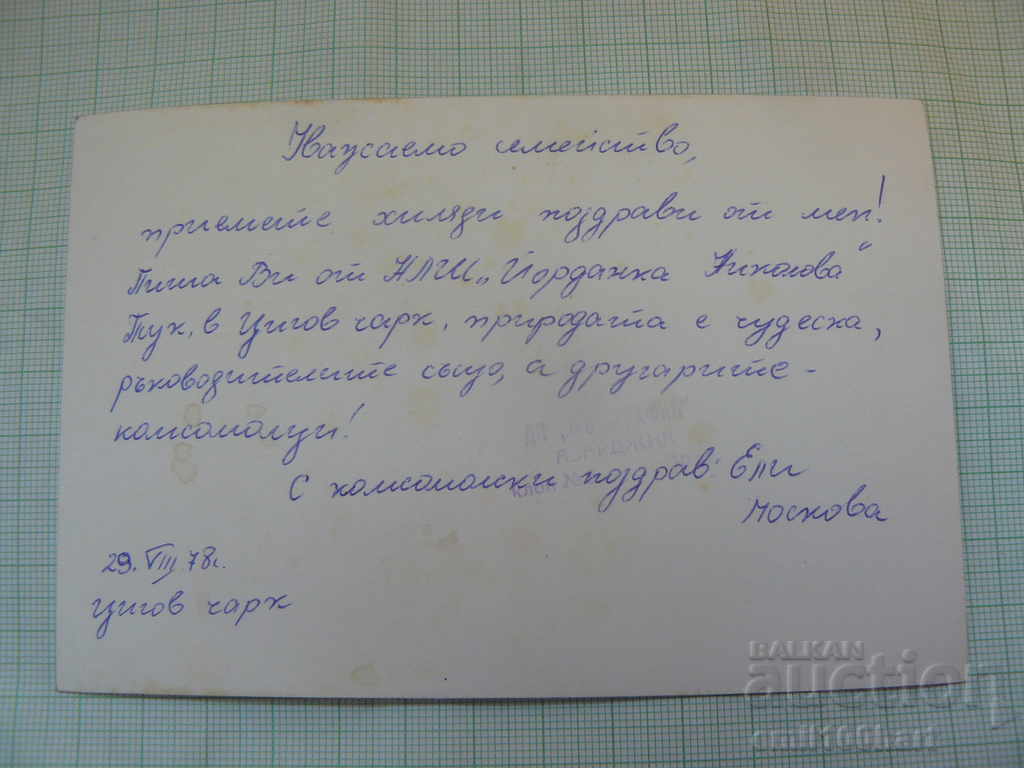 Уважаемо семейство,
приемете хиляди поздрави от мен!
Пиша Ви от НЛШ „Йорданка Николова“
Тук, в Цигов чарк, природата е чудесна,
ръководителите също, а другарите -
комсомолци!
С комсомолски поздрав: Ели
Москова
29. VIII 78г.
Цигов чарк
BALKAN
auction
emil100hart